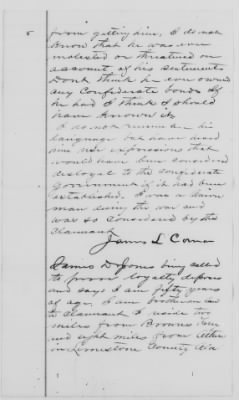 5
from getting him. I do not
know that he was ever
molested or threatened on
account of his sentiments
Dont think he ever owned
any Confederate bonds if
he had I think I should
have known it
I do not remember his
language but have heard
him use expressions that
would have been considered
disloyal to the confederate
Government if it had been
established. I was a Union
man during the war and
was so Considered by the
Claimant
James L Comer
James D Jones being called
to prove loyalty deposes
and says I am fifty years
of age. I am brother in law
to claimant I reside two
miles from Browns
and eight miles from
in Limestone County Ala